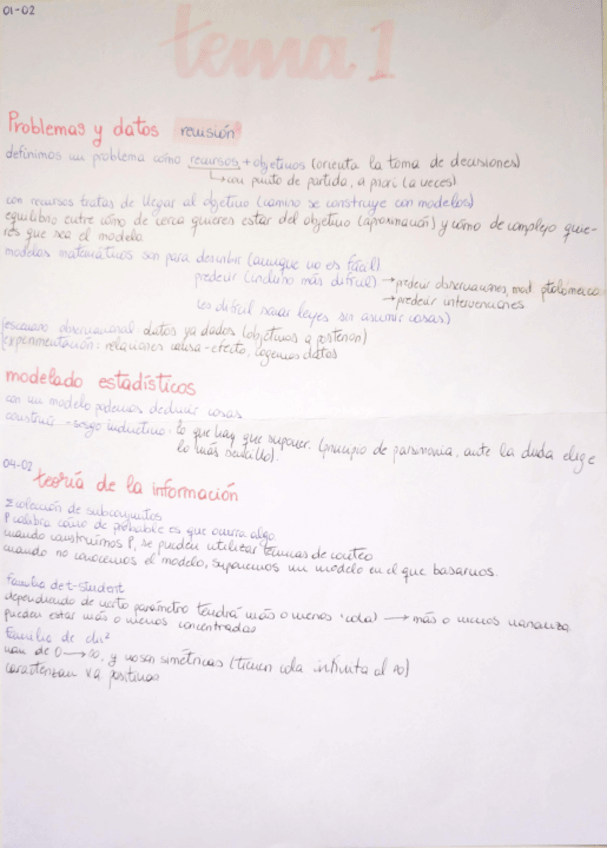 01-02
tema 1
Problemas y datos revisión
definimos un problema como recursos + objetivos (orienta la toma de decisiones)
↳ con punto de partida, a priori (a veces)
con recursos tratas de llegar al objetivo (camino se construye con modelos)
equilibrio entre cómo de cerca quieres estar del objetivo (aproximación) y cómo de complejo quie-
res que sea el modelo.
modelos matemáticos son para describir (aunque no es fácil)
predecir (incluso más difícil) → predecir observaciones, mod ptolomeico
→ predecir intervenciones
(es difícil sacar leyes sin asumir cosas)
escenario observacional datos ya dados (objetivos a posteriori)
experimentación: relaciones causa-efecto, cogemos datos
modelado estadísticos
con un modelo podemos deducir cosas
construir - sesgo inductivo: lo que hay que suponer. (principio de parsimonia, ante la duda elige
lo más sencillo).
04-02
teoría de la información
Σ colección de subconjuntos
P calibra cómo de probable es que ocurra algo
cuando construimos P, se pueden utilizar técnicas de conteo
cuando no conocemos el modelo, suponemos un modelo en el que basarnos.
Familia de t-student
dependiendo de cierto parámetro tendrá más o menos "cola" → más o menos varianza
pueden estar más o menos concentradas
Familia de chi²
van de 0 → ∞, y no son simétricas (tienen cola infinita al ∞)
caracterizan va positivas